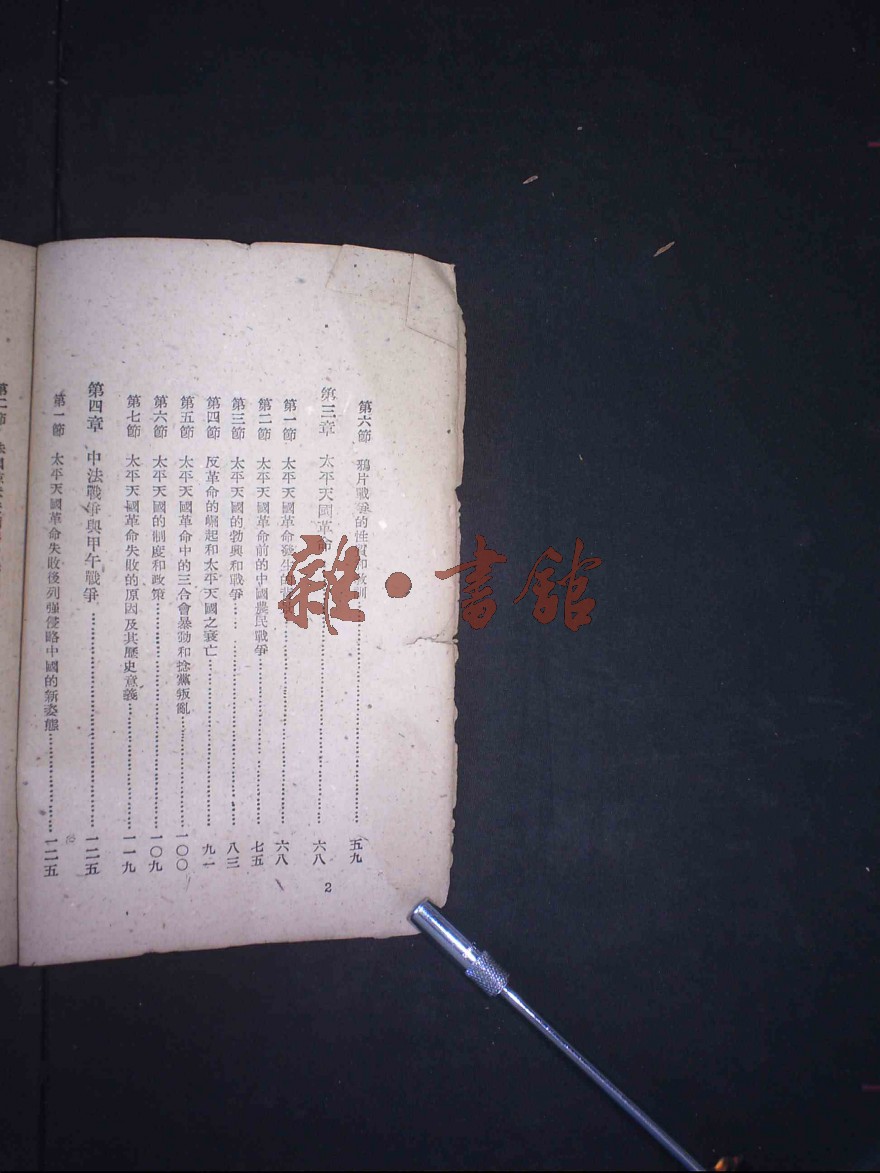 第六節　鴉片戰爭的性質和教訓…………五九
第三章　太平天國革命…………六八
第一節　太平天國革命發生的…………六八
第二節　太平天國革命前的中國農民戰爭…………七五
第三節　太平天國的勃興和戰爭…………八三
第四節　反革命的崛起和太平天國之衰亡…………九一
第五節　太平天國革命中的三合會暴動和捻黨叛亂…………一〇〇
第六節　太平天國的制度和政策…………一〇九
第七節　太平天國革命失敗的原因及其歷史意義…………一一九
第四章　中法戰爭與甲午戰爭…………一二五
第一節　太平天國革命失敗後列強侵略中國的新姿態…………一二五
2
第二節
雜·書館